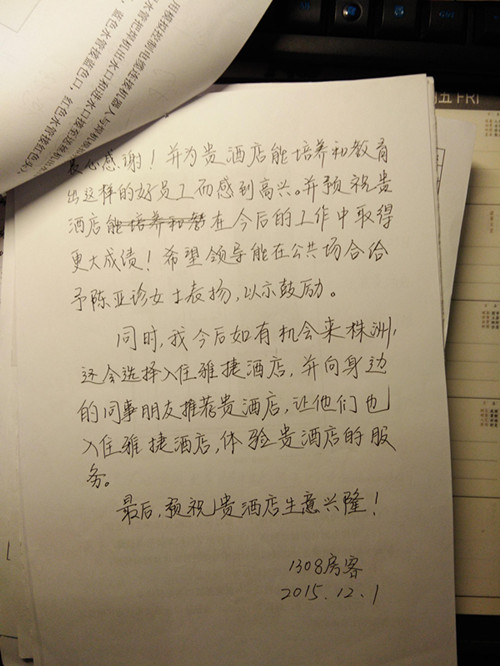 衷心感谢！并为贵酒店能培养和教育
出这样的好员工而感到高兴。并预祝贵
酒店能培养和教在今后的工作中取得
更大成绩！希望领导能在公共场合给
予陈亚诊女士表扬，以示鼓励。
同时，我今后如有机会来株洲，
还会选择入住雅捷酒店，并向身边
的同事朋友推荐贵酒店，让他们也
入住雅捷酒店，体验贵酒店的服
务。
最后，预祝贵酒店生意兴隆！
1308房客
2015.12.1
五 FRI
蓝色水管接蓝色口，红色水管接红色